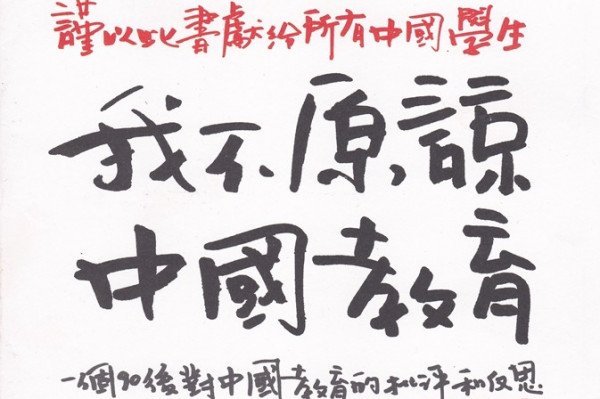 謹以此書獻給所有中國學生
我不原諒
中國教育
一個90後對中國教育的批评和反思